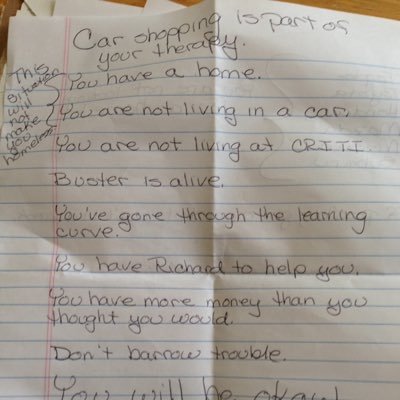 Car shopping is part of
your therapy.
This
situation
will
not
make
you
homeless
You have a home.
You are not living in a car.
You are not living at CRITI.
Buster is alive.
You've gone through the learning
curve.
You have Richard to help you.
You have more money than you
thought you would.
Don't barrow trouble.
You will be okay!